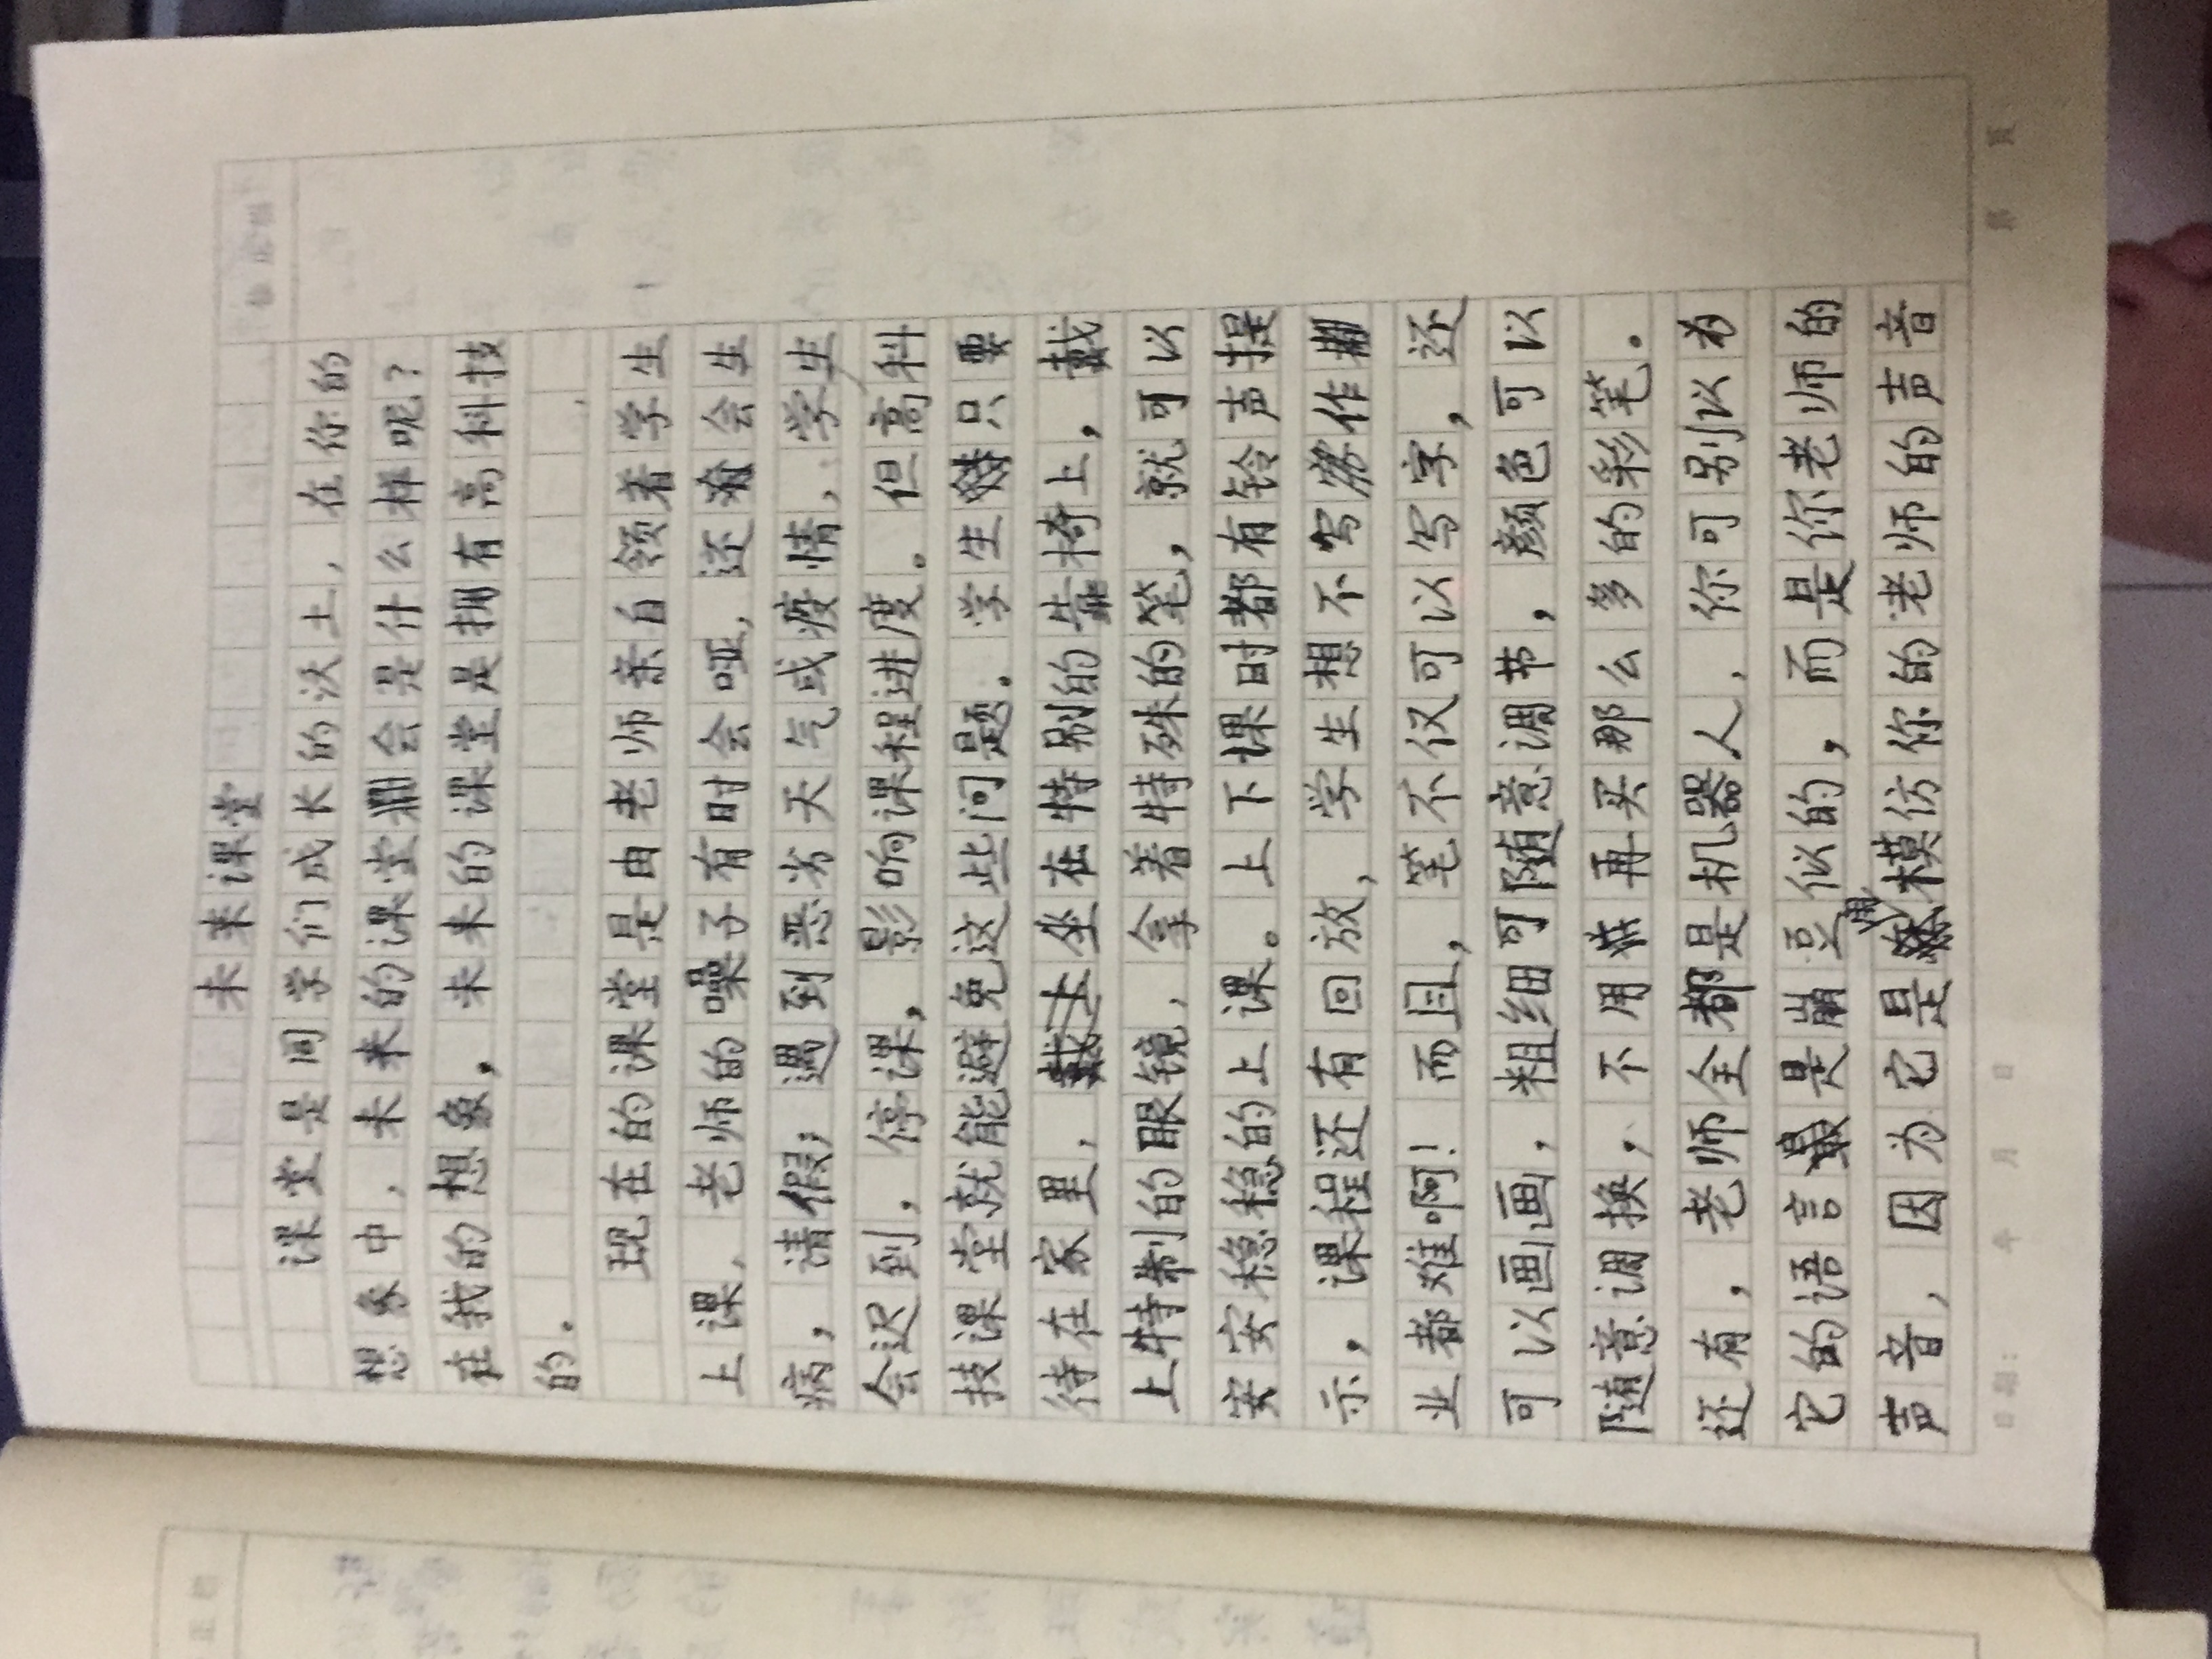 未来课堂
课堂是同学们成长的沃土，在你的
想象中，未来的课堂会是什么样呢？
在我的想象，未来的课堂是拥有高科技
的。
现在的课堂是由老师亲自领着学生
上课，老师的噪子有时会哑，还会生
病，请假；遇到恶劣天气或疫情，学生
会迟到，停课，影响课程进度。但高科
技课堂就能避免这些问题。学生只要
待在家里，坐在特别的靠椅上，戴
上特制的眼镜，拿着特殊的笔，就可以
安安稳稳的上课。上下课时都有铃声提
示，课程还有回放，学生想不写作
业都难啊！而且，笔不仅可以写字，还
可以画画，粗细可随意调节，颜色可以
随意调换，不用再买那么多的彩笔。
还有，老师全都是机器人，你可别以为
它的语言是崩豆似的，而是你老师的
声音，因为它是用模仿你的老师的声音
日期： 年 月 日
第 页